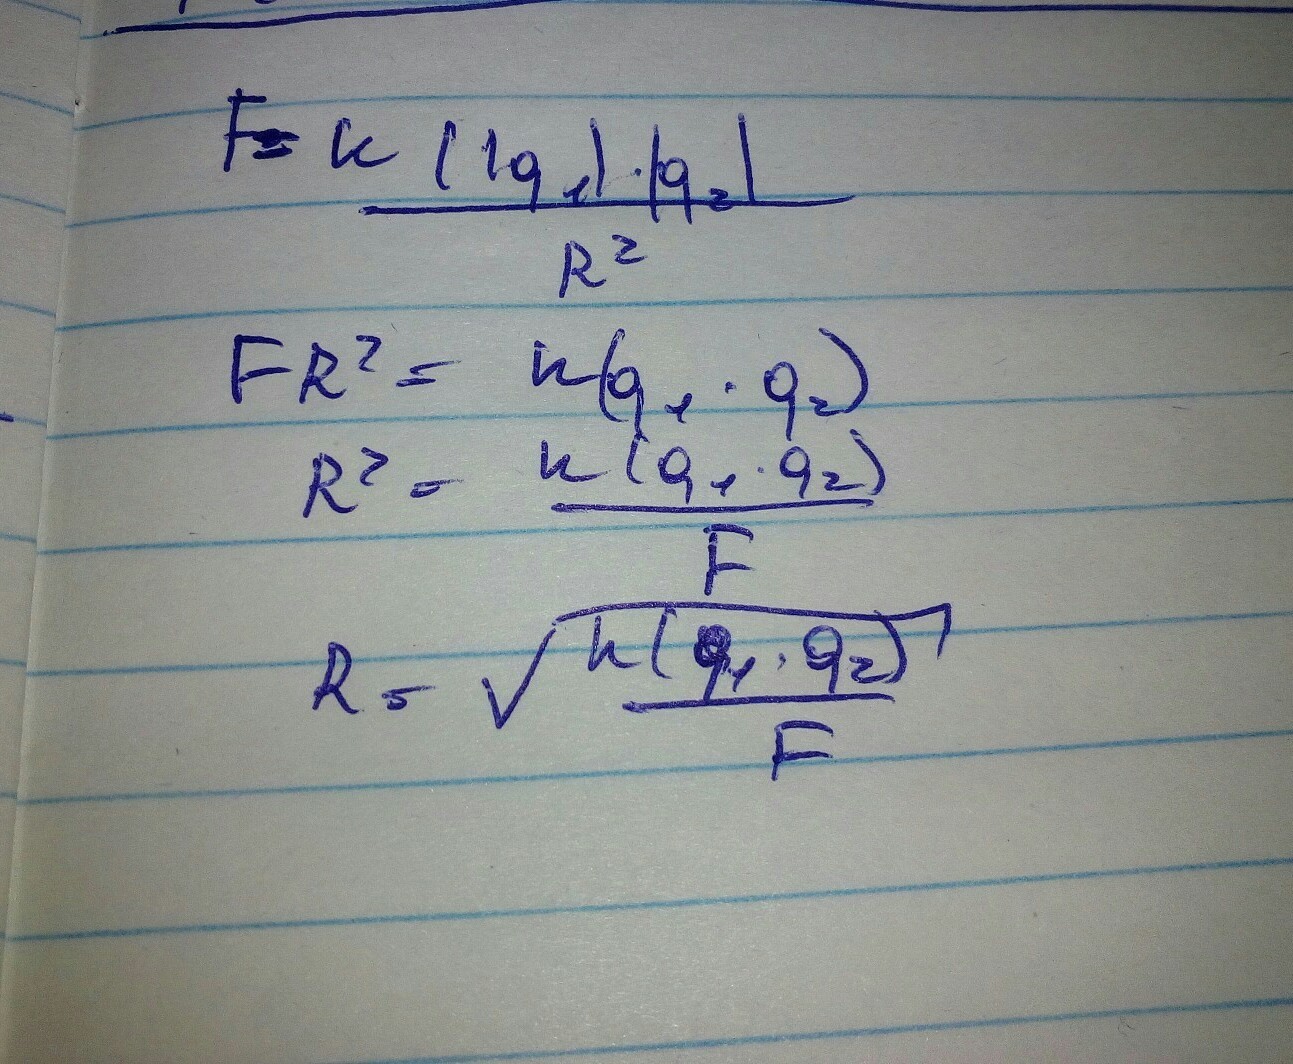 F = k (|q₁|·|q₂|
R²
FR² = k(q₁·q₂)
R² = k(q₁·q₂)
F
R = √k(q₁·q₂)
F